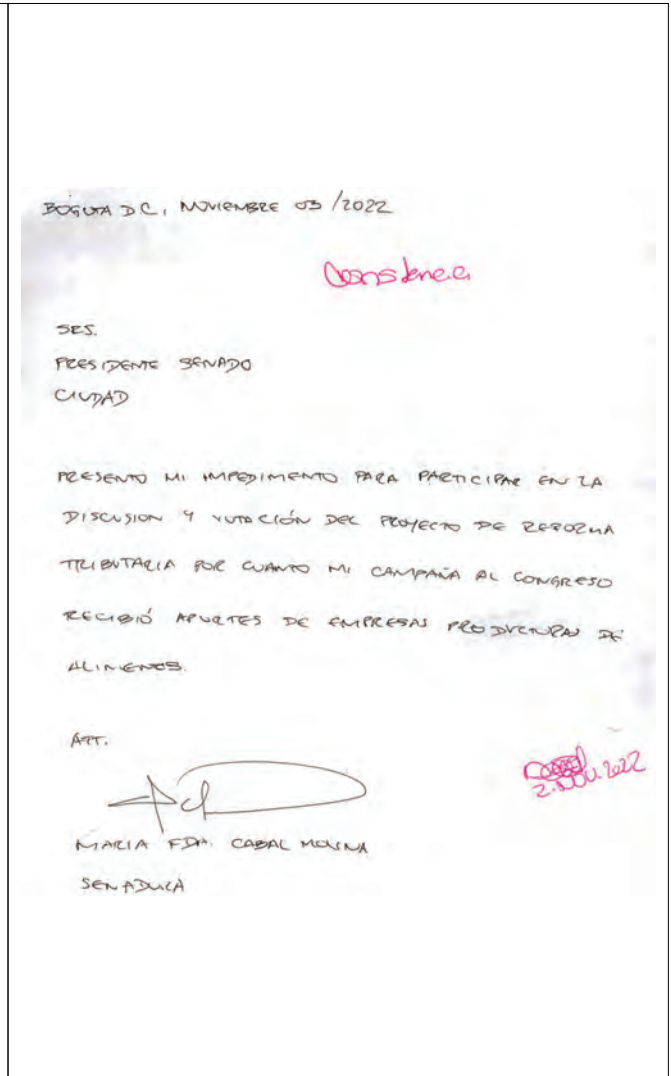 BOGOTA D.C, NOVIEMBRE 03/2022
Constancia
SRS.
PRESIDENTE SENADO
CIUDAD
PRESENTO MI IMPEDIMENTO PARA PARTICIPAR EN LA
DISCUSION Y VOTACIÓN DEL PROYECTO DE REFORMA
TRIBUTARIA POR CUANTO MI CAMPAÑA AL CONGRESO
RECIBIÓ APORTES DE EMPRESAS PRODUCTORAS DE
ALIMENTOS.
ATT.
2.NOV.2022
MARIA FDA. CABAL MOLINA
SENADORA